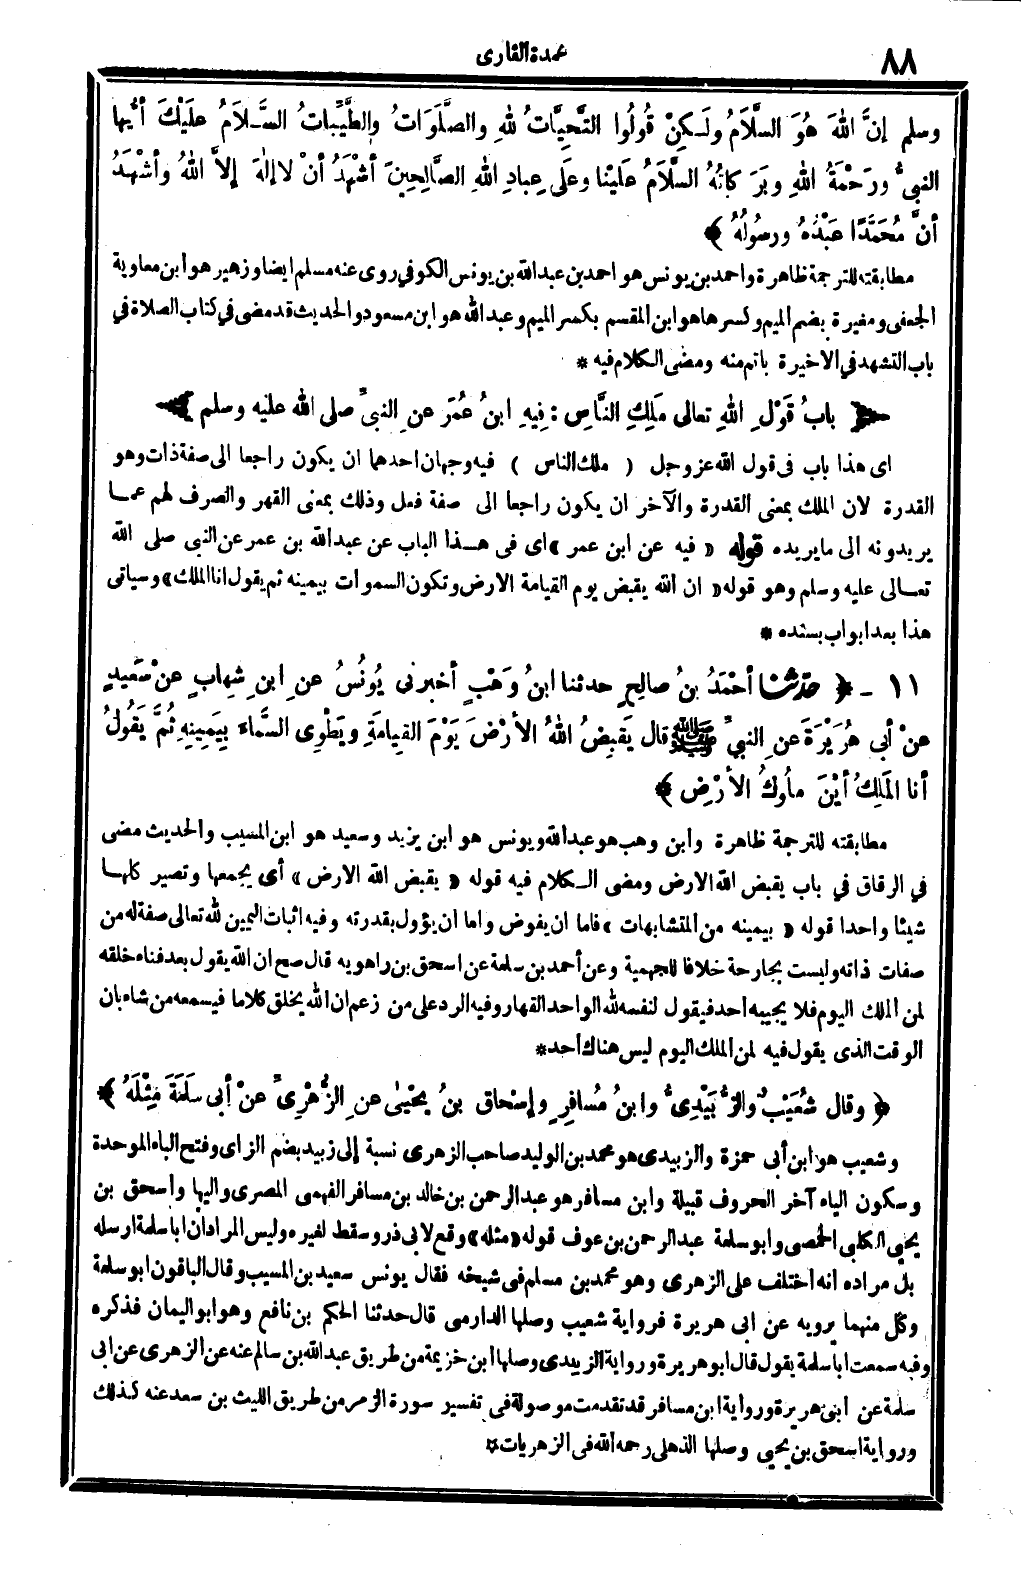 ٨٨
عمدة القارى
وسلم إنَّ اللهَ هُوَ السَّلَامُ ولَـكِنْ قُولُوا التَّحِيَّاتُ للهِ والصَّلَوَاتُ والطَّيِّباتُ السَّـلَامُ علَيْكَ أيُّها
النبيُّ ورَحْمَةُ اللهِ وبَرَكاتُهُ السَّلَامُ علَيْنا وعلَى عِبادِ اللهِ الصَّالِحِينَ أشْهَدُ أنْ لا إلٰهَ إلاَّ اللهُ وأشْهَدُ
أنَّ مُحَمَّدًا عَبْدُهُ ورسُولُهُ ﴾
مطابقته للترجمة ظاهرة واحمد بن يونس هو احمد بن عبدالله بن يونس الكوفي روى عنه مسلم ايضا وزهير هو ابن معاوية
الجعفى ومغيرة بضم الميم وكسرها هو ابن المقسم بكسر الميم وعبد الله هو ابن مسعود والحديث قد مضى في كتاب الصلاة في
باب التشهد في الاخيرة باتم منه ومضى الكلام فيه *
﴿ بابُ قَوْلِ اللهِ تعالى مَلِكِ النَّاسِ : فِيهِ ابنُ عُمَرَ عنِ النبيِّ صلى الله عليه وسلم ﴾
اى هذا باب فى قول الله عز وجل ( ملك الناس ) فيه وجهان احدهما ان يكون راجعا الى صفة ذات وهو
القدرة لان الملك بمعنى القدرة والآخر ان يكون راجعا الى صفة فعل وذلك بمعنى القهر والصرف لهم عمـا
يريدونه الى ما يريده قوله « فيه عن ابن عمر » اى فى هـذا الباب عن عبدالله بن عمر عن النبى صلى الله
تعـالى عليه وسلم وهو قوله « ان الله يقبض يوم القيامة الارض وتكون السموات بيمينه ثم يقول انا الملك » وسياتى
هذا بعد ابواب بسنده *
١١ - ﴿ حدّثنا أحْمَدُ بنُ صالِحٍ حدثنا ابنُ وَهْبٍ أخبرنى يُونُسُ عنِ ابنِ شِهابٍ عنْ سَعِيدٍ
عنْ أبى هُرَيْرَةَ عنِ النبيِّ ﷺ قال يَقبِضُ اللهُ الأرْضَ يَوْمَ القِيامَةِ ويَطْوِى السَّماءَ بِيَمِينِهِ ثُمَّ يَقُولُ
أنا المَلِكُ أيْنَ مُلُوكُ الأرْضِ ﴾
مطابقته للترجمة ظاهرة وابن وهب هو عبدالله ويونس هو ابن يزيد وسعيد هو ابن المسيب والحديث مضى
في الرقاق في باب يقبض الله الارض ومضى الـكلام فيه قوله « يقبض الله الارض » أى يجمعها وتصير كلهـا
شيئا واحدا قوله « بيمينه من المتشابهات » فاما ان يفوض واما ان يؤول بقدرته وفيه اثبات اليمين لله تعالى صفة له من
صفات ذاته وليست بجارحة خلافا للجهمية وعن أحمد بن سلمة عن اسحق بن راهويه قال صح ان الله يقول بعد فناء خلقه
لمن الملك اليوم فلا يجيبه احد فيقول لنفسه لله الواحد القهار وفيه الرد على من زعم ان الله يخلق كلاما فيسمعه من شاء بان
الوقت الذى يقول فيه لمن الملك اليوم ليس هناك أحد*
﴿ وقال شُعَيْبٌ والزُّبَيْدِىُّ وابنُ مُسافِرٍ وإسْحاق بنُ يَحْيىٰ عنِ الزُّهْرِىِّ عنْ أبى سَلَمَةَ مِثْلَهُ ﴾
وشعيب هو ابن أبى حمزة والزبيدى هو محمد بن الوليد صاحب الزهرى نسبة إلى زبيد بضم الزاى وفتح الباء الموحدة
وسكون الياء آخر الحروف قبيلة وابن مسافر هو عبد الرحمن بن خالد بن مسافر الفهمى المصرى واليها واسحق بن
يحيي الكلبي الحمصى وابو سلمة عبد الرحمن بن عوف قوله « مثله » وقع لابى ذر وسقط لغيره وليس المراد ان ابا سلمة ارسله
بل مراده انه أختلف على الزهرى وهو محمد بن مسلم فى شيخه فقال يونس سعيد بن المسيب وقال الباقون ابو سلمة
وكل منهما يرويه عن ابى هريرة فرواية شعيب وصلها الدارمى قال حدثنا الحكم بن نافع وهو ابو اليمان فذكره
وفيه سمعت ابا سلمة يقول قال ابو هريرة ورواية الزبيدى وصلها ابن خزيمة من طريق عبدالله بن سالم عنه عن الزهرى عن ابى
سلمة عن ابى هريرة ورواية ابن مسافر قد تقدمت موصولة فى تفسير سورة الزمر من طريق الليث بن سعد عنه كـذلك
ورواية اسحق بن يحيي وصلها الذهلى رحمه الله فى الزهريات*